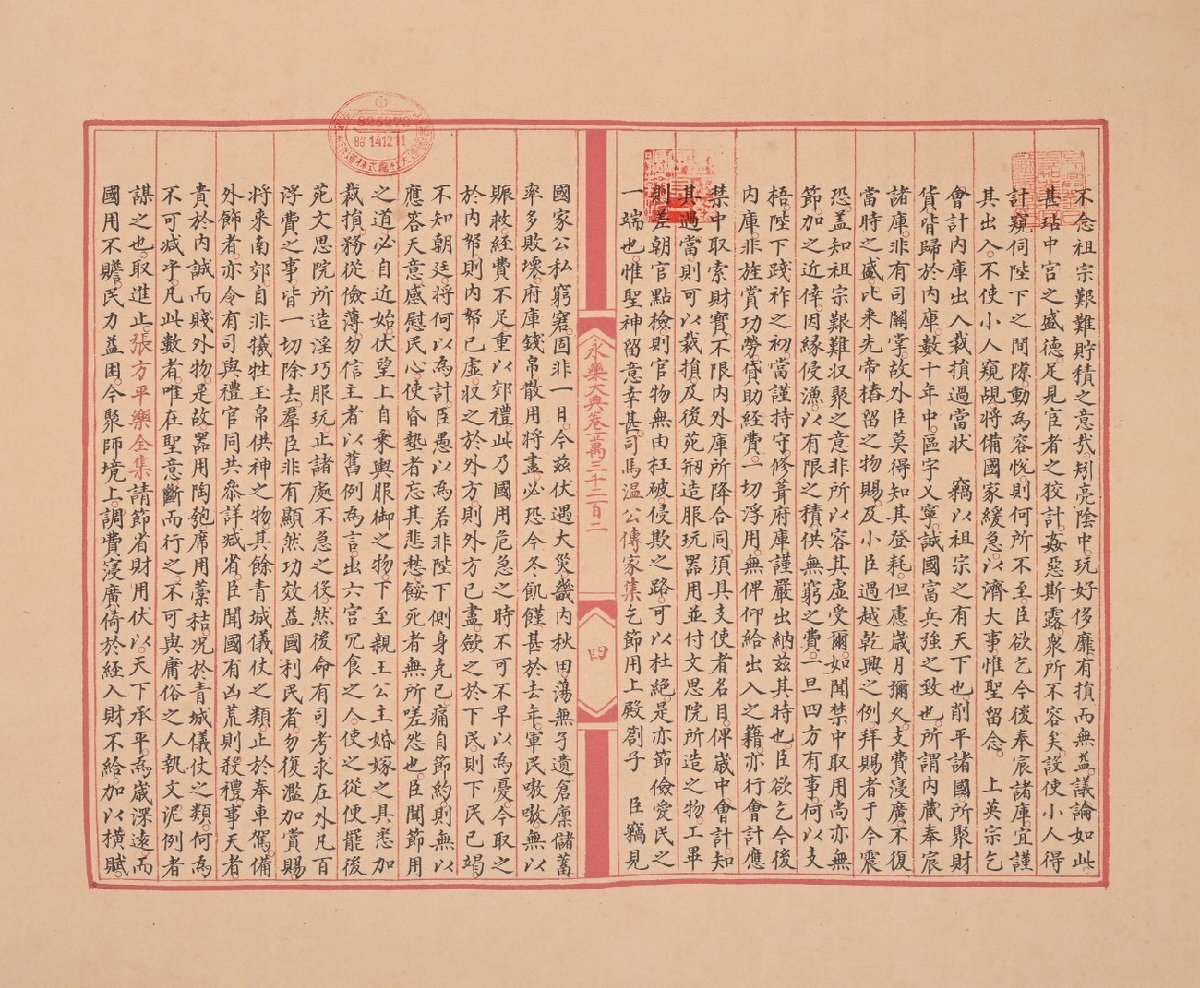 不念祖宗艱難貯積之意哉矧亮陰中玩好侈靡有損而無益議論如此
甚玷中宮之盛德足見宦者之狡計姦惡斯露衆所不容矣設使小人得
計窺伺陛下之間隙動為容悅則何所不至臣欲乞今後奉宸諸庫宜謹
其出入不使小人窺覘將備國家緩急以濟大事惟聖留念 上英宗乞
會計內庫出入裁損過當狀 竊以祖宗之有天下也削平諸國所聚財
貨皆歸於內庫數十年中區宇乂寧誠國富兵強之致也所謂內藏奉宸
諸庫非有司關掌故外臣莫得知其登耗但慮歲月彌乆支費寖廣不復
當時之盛比来先帝樁留之物賜及小臣過越乾興之例拜賜者于今震
恐蓋知祖宗艱難収聚之意非所以容其虛受爾如聞禁中取用尚亦無
節加之近倖因緣侵漁以有限之積供無窮之費一旦四方有事何以支
梧陛下踐祚之初當謹持守修葺府庫謹嚴出納茲其時也臣欲乞今後
內庫非旌賞功勞貸助經費一切浮用無俾仰給出入之籍亦行會計應
禁中取索財寳不限內外庫所降合同須具支使者名目俾歲中會計知
其過當則可以裁損及後苑剏造服玩器用並付文思院所造之物工畢
則差朝官點檢則官物無由枉破侵欺之路可以杜絶是亦節儉愛民之
一端也惟聖神留意幸甚司馬温公傳家集乞節用上殿劄子 臣竊見
永樂大典卷一萬三千二百二
四
國家公私窮窘固非一日今茲伏遇大災畿內秋田蕩無孑遺倉廩儲蓄
率多敗壞府庫錢帛散用將盡必恐今冬飢饉甚於去年軍民嗷嗷無以
賑救經費不足重以郊禮此乃國用危急之時不可不早以為憂今取之
於內帑則內帑已虛収之於外方則外方已盡歛之於下民則下民已竭
不知朝廷將何以為計臣愚以為若非陛下側身克已痛自節約則無以
應答天意感慰民心使昏墊者忘其悲愁餒死者無所嗟怨也臣聞節用
之道必自近始伏望上自乘輿服御之物下至親王公主婚嫁之具悉加
裁損務從儉薄勿信主者以舊例為言出六宮冗食之人使之從便罷後
苑文思院所造淫巧服玩止諸處不急之役然後命有司考求在外凡百
浮費之事皆一切除去羣臣非有顯然功效益國利民者勿復濫加賞賜
將来南郊自非犧牲玉帛供神之物其餘青城儀仗之類止於奉車駕備
外飾者亦令有司與禮官同共叅詳減省臣聞國有凶荒則殺禮事天者
貴於內誠而賤外物是故器用陶匏席用藁秸况於青城儀仗之類何為
不可減乎凡此數者唯在聖意斷而行之不可與庸俗之人執文泥例者
謀之也取進止張方平樂全集請節省財用伏以天下承平為歲深遠而
國用不贍民力益困今聚師境上調費寖廣倚於經入財不給加以橫賦